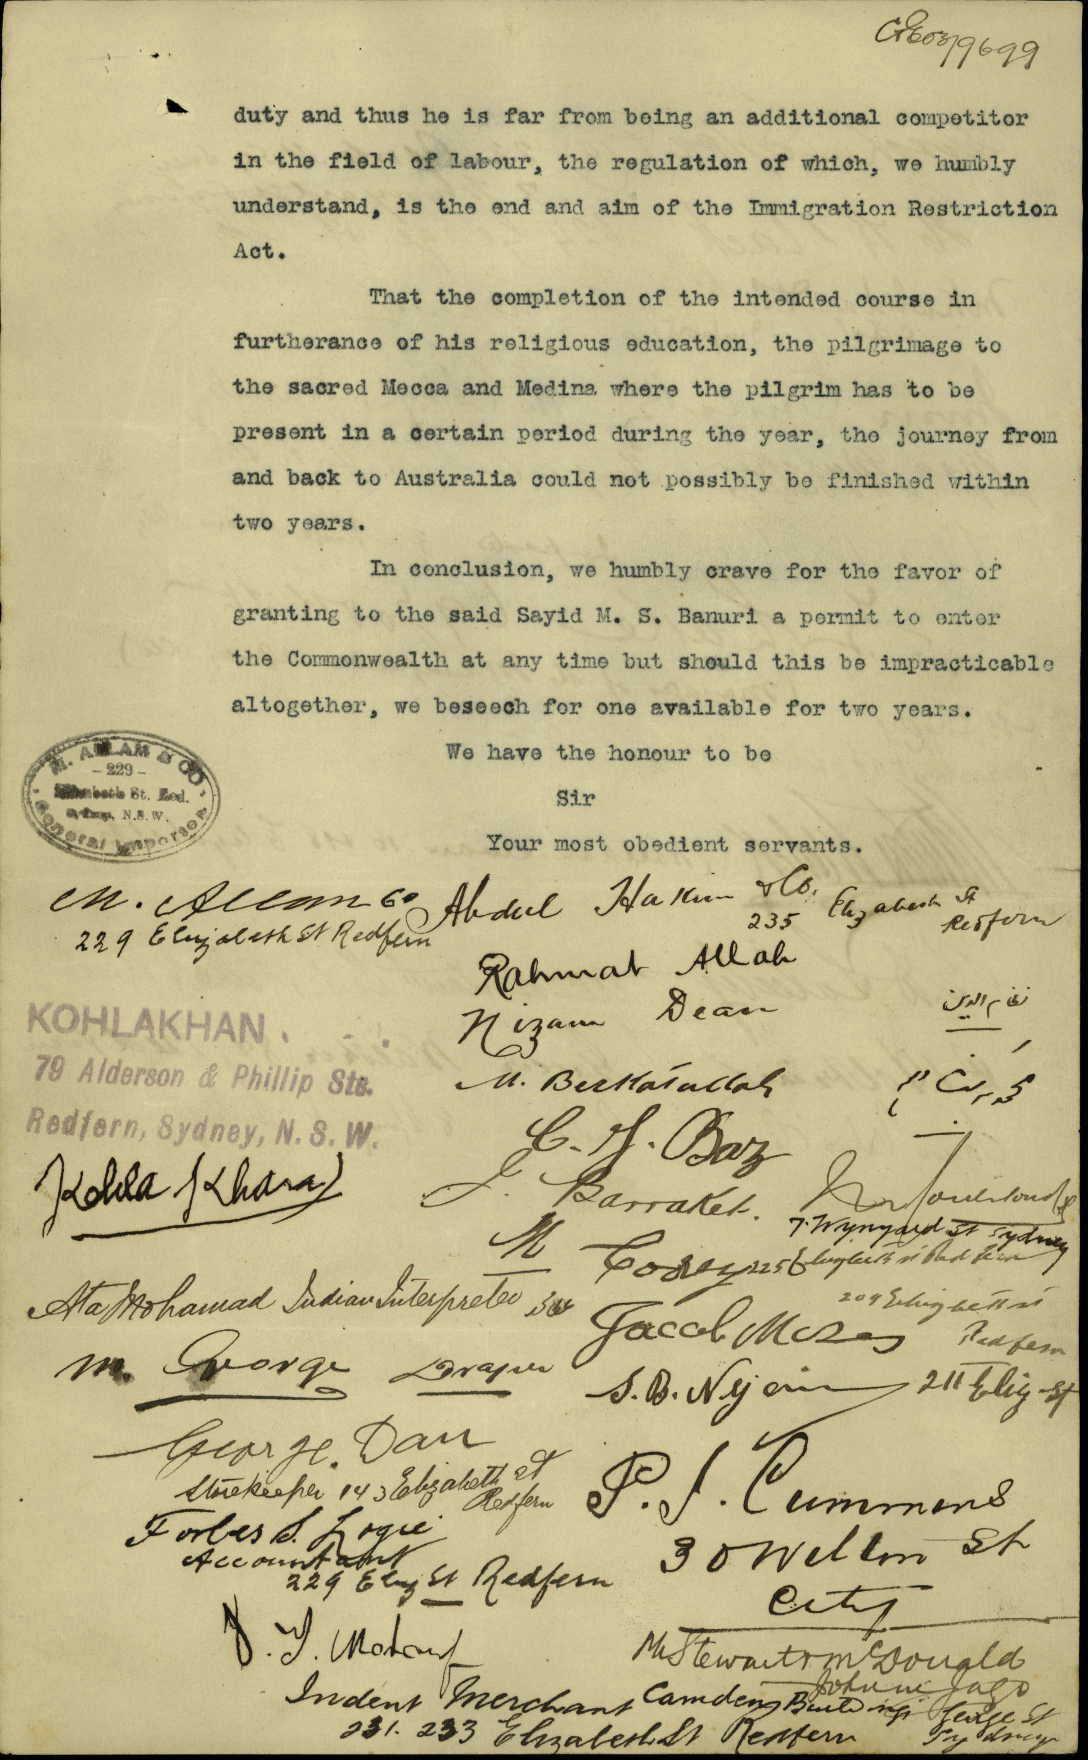 9699
duty and thus he is far from being an additional competitor
in the field of labour, the regulation of which, we humbly
understand, is the end and aim of the Immigration Restriction
Act.
That the completion of the intended course in
furtherance of his religious education, the pilgrimage to
the sacred Mecca and Medina where the pilgrim has to be
present in a certain period during the year, the journey from
and back to Australia could not possibly be finished within
two years.
In conclusion, we humbly crave for the favor of
granting to the said Sayid M. S. Banuri a permit to enter
the Commonwealth at any time but should this be impracticable
altogether, we beseech for one available for two years.
We have the honour to be
Sir
Your most obedient servants.
M. ALLAM & CO
- 229 -
Elizabeth St. Red.
Sydney, N.S.W.
General Importer
M. Allam Co
229 Elizabeth St Redfern
Abdul Hakim & Co.
235 Elizabeth St
Redfern
Rahmat Allah
Nizam Dean
نظام الدين
M. Berkatullah
KOHLAKHAN.
79 Alderson & Phillip Sts.
Redfern, Sydney, N. S. W.
Kohla Khan
C. Baz
J. Barraket.
7. Wynyard St Sydney
M Coorey 225 Elizabeth St Redfern
Ata Mohamad Indian Interpreter
Jacob Moses
209 Elizabeth St
Redfern
M. George Draper
S. B. Nejaim 211 Eliz St
George. Dan
Storekeeper 143 Elizabeth St
Redfern
P. J. Cummins
30 Wellon St
City
Forbes S. Logie
Accountant
229 Eliz St Redfern
J. Y.
Indent Merchant
231. 233 Elizabeth St Redfern
Stewart McDonald
John Jago
Camden Buildings George St
Sydney